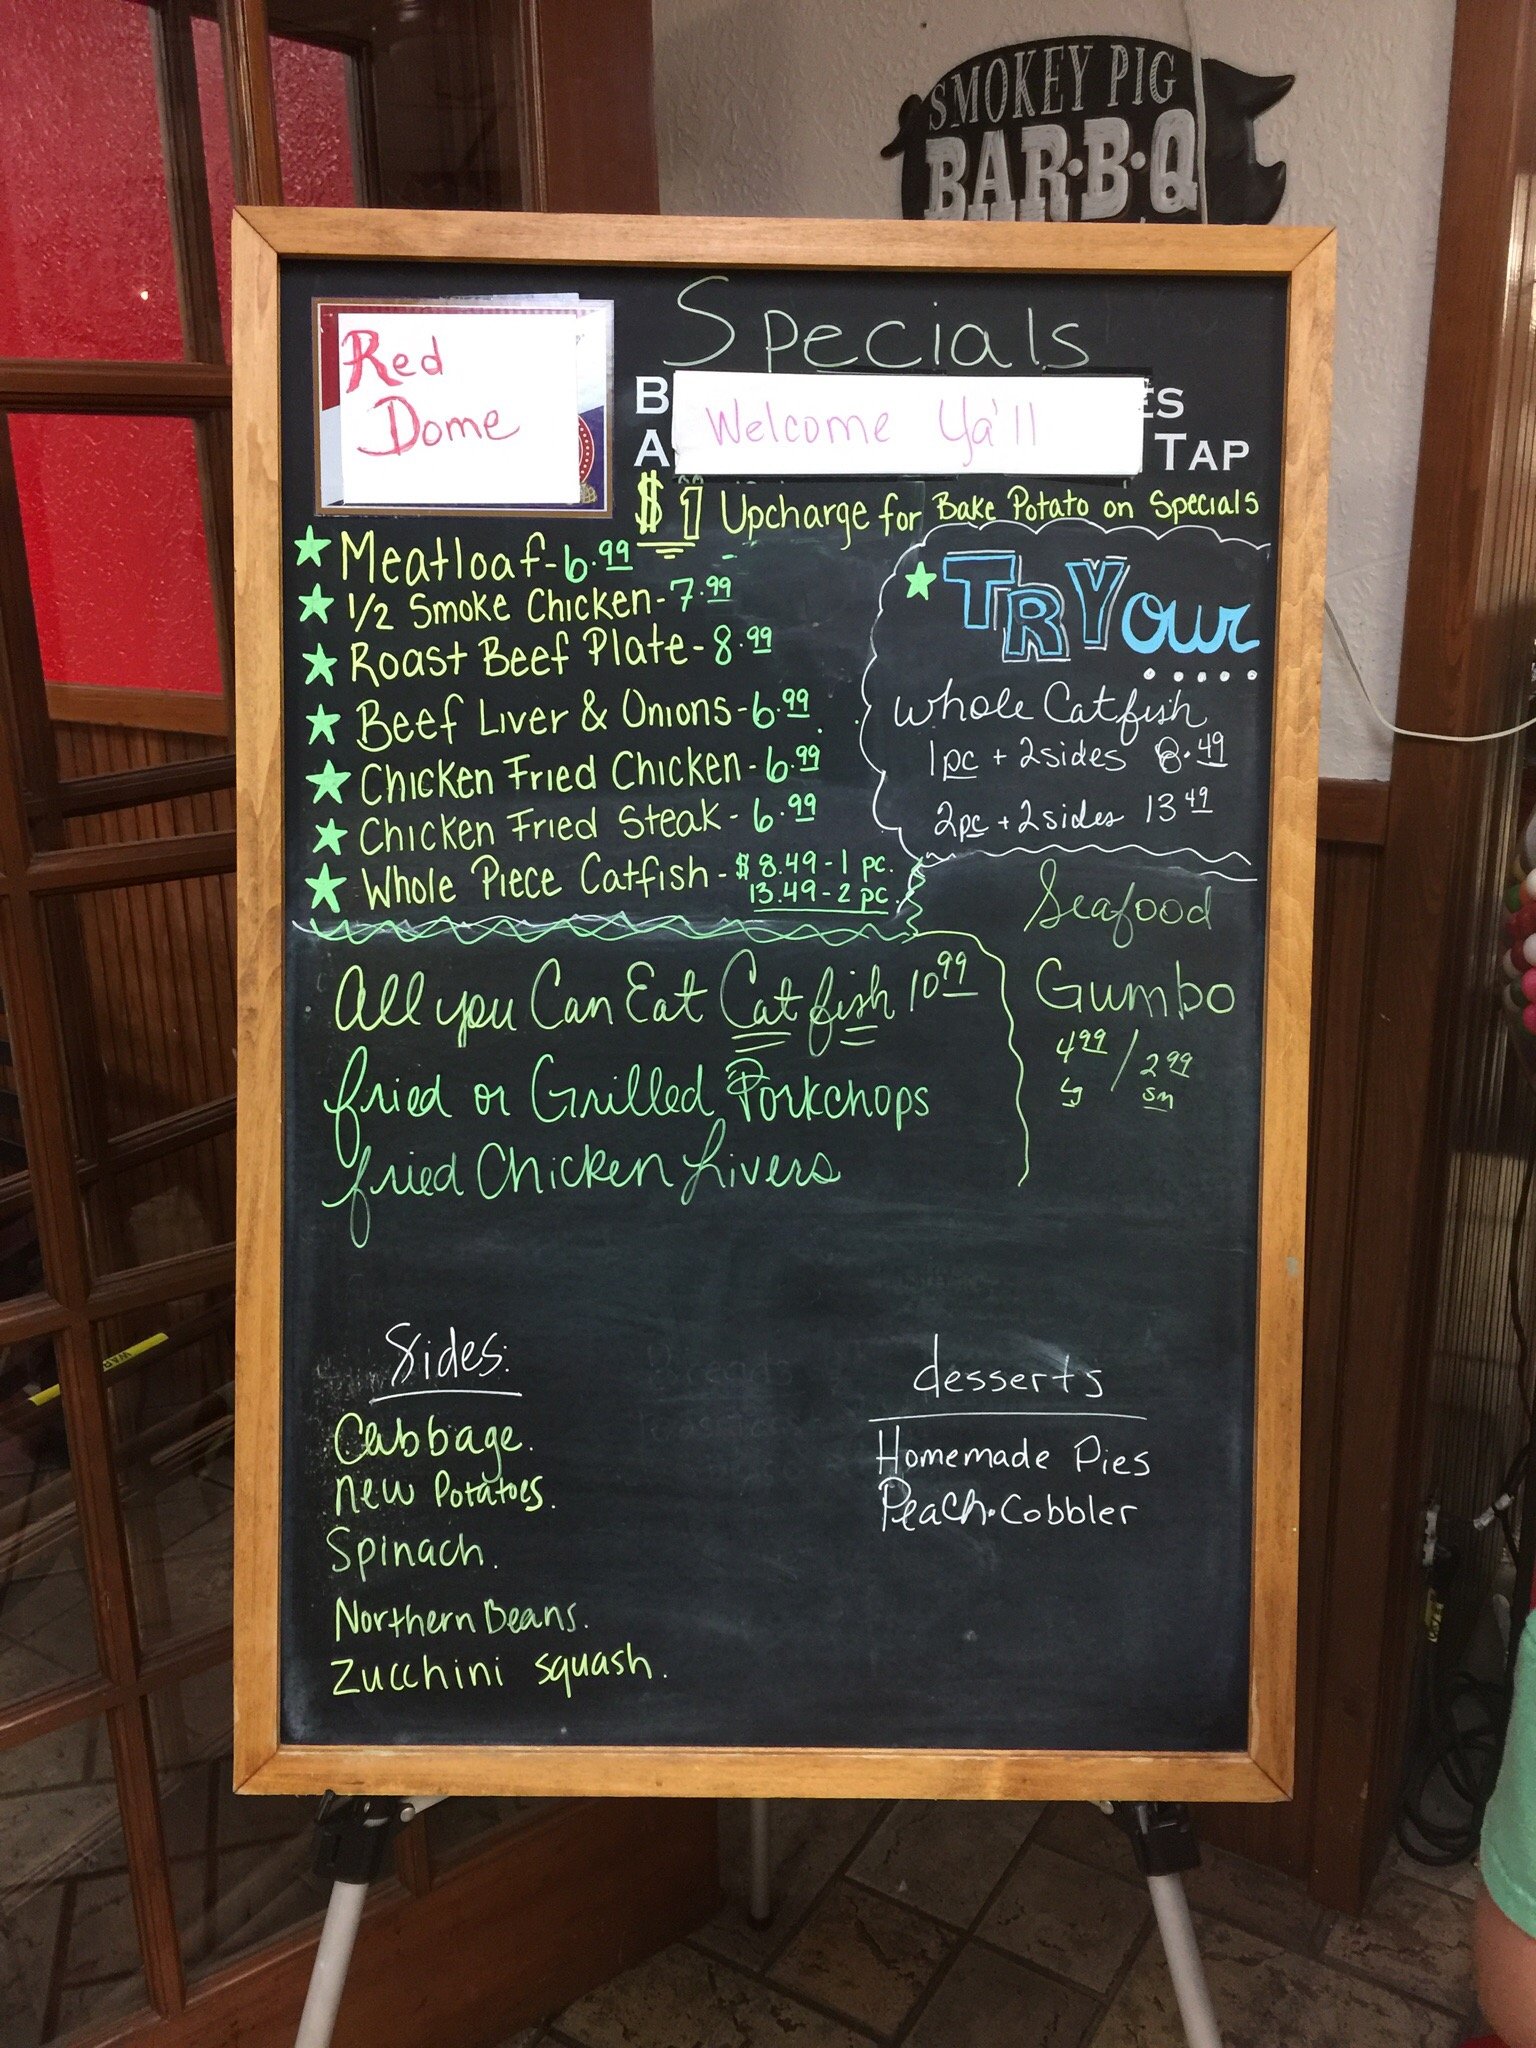 SMOKEY PIG
BAR·B·Q
Specials
Red
Dome
Welcome Ya'll
TAP
$1 Upcharge for Bake Potato on Specials
★ Meatloaf - 6.99
★ 1/2 Smoke Chicken - 7.99
★ Roast Beef Plate - 8.99
★ Beef Liver & Onions - 6.99
★ Chicken Fried Chicken - 6.99
★ Chicken Fried Steak - 6.99
★ Whole Piece Catfish - $8.49 - 1 pc.
13.49 - 2 pc.
★ TRY our
.....
whole Catfish
1pc + 2sides 8.49
2pc + 2sides 13 49
Seafood
Gumbo
4 99 / 2 99
lg sm
All you Can Eat Catfish 10 99
fried or Grilled Porkchops
fried Chicken Livers
Sides:
Cabbage.
New Potatoes.
Spinach.
Northern Beans.
Zucchini squash.
desserts
Homemade Pies
Peach Cobbler